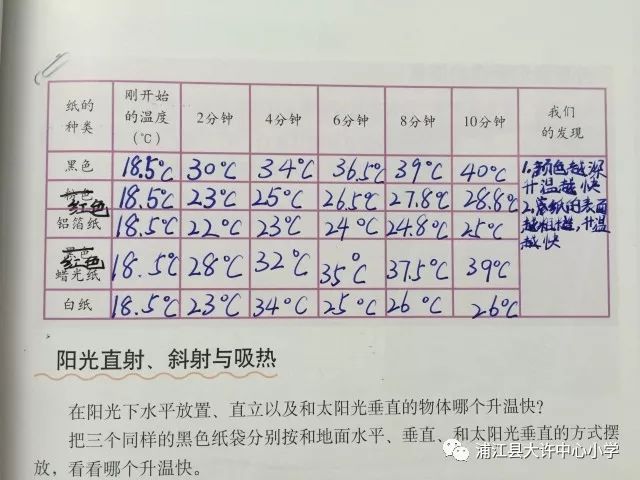 纸的种类 刚开始的温度(℃) 2分钟 4分钟 6分钟 8分钟 10分钟 我们的发现
黑色 18.5℃ 30℃ 34℃ 36.5℃ 39℃ 40℃
红色 18.5℃ 23℃ 25℃ 26.5℃ 27.8℃ 28.8℃
铝箔纸 18.5℃ 22℃ 23℃ 24℃ 24.8℃ 25℃
红色蜡光纸 18.5℃ 28℃ 32℃ 35℃ 37.5℃ 39℃
白纸 18.5℃ 23℃ 34℃ 25℃ 26℃ 26℃
1.颜色越深
升温越快
2.纸的表面
越粗糙,升温
越快
阳光直射、斜射与吸热
在阳光下水平放置、直立以及和太阳光垂直的物体哪个升温快?
把三个同样的黑色纸袋分别按和地面水平、垂直、和太阳光垂直的方式摆
放,看看哪个升温快。
浦江县大许中心小学